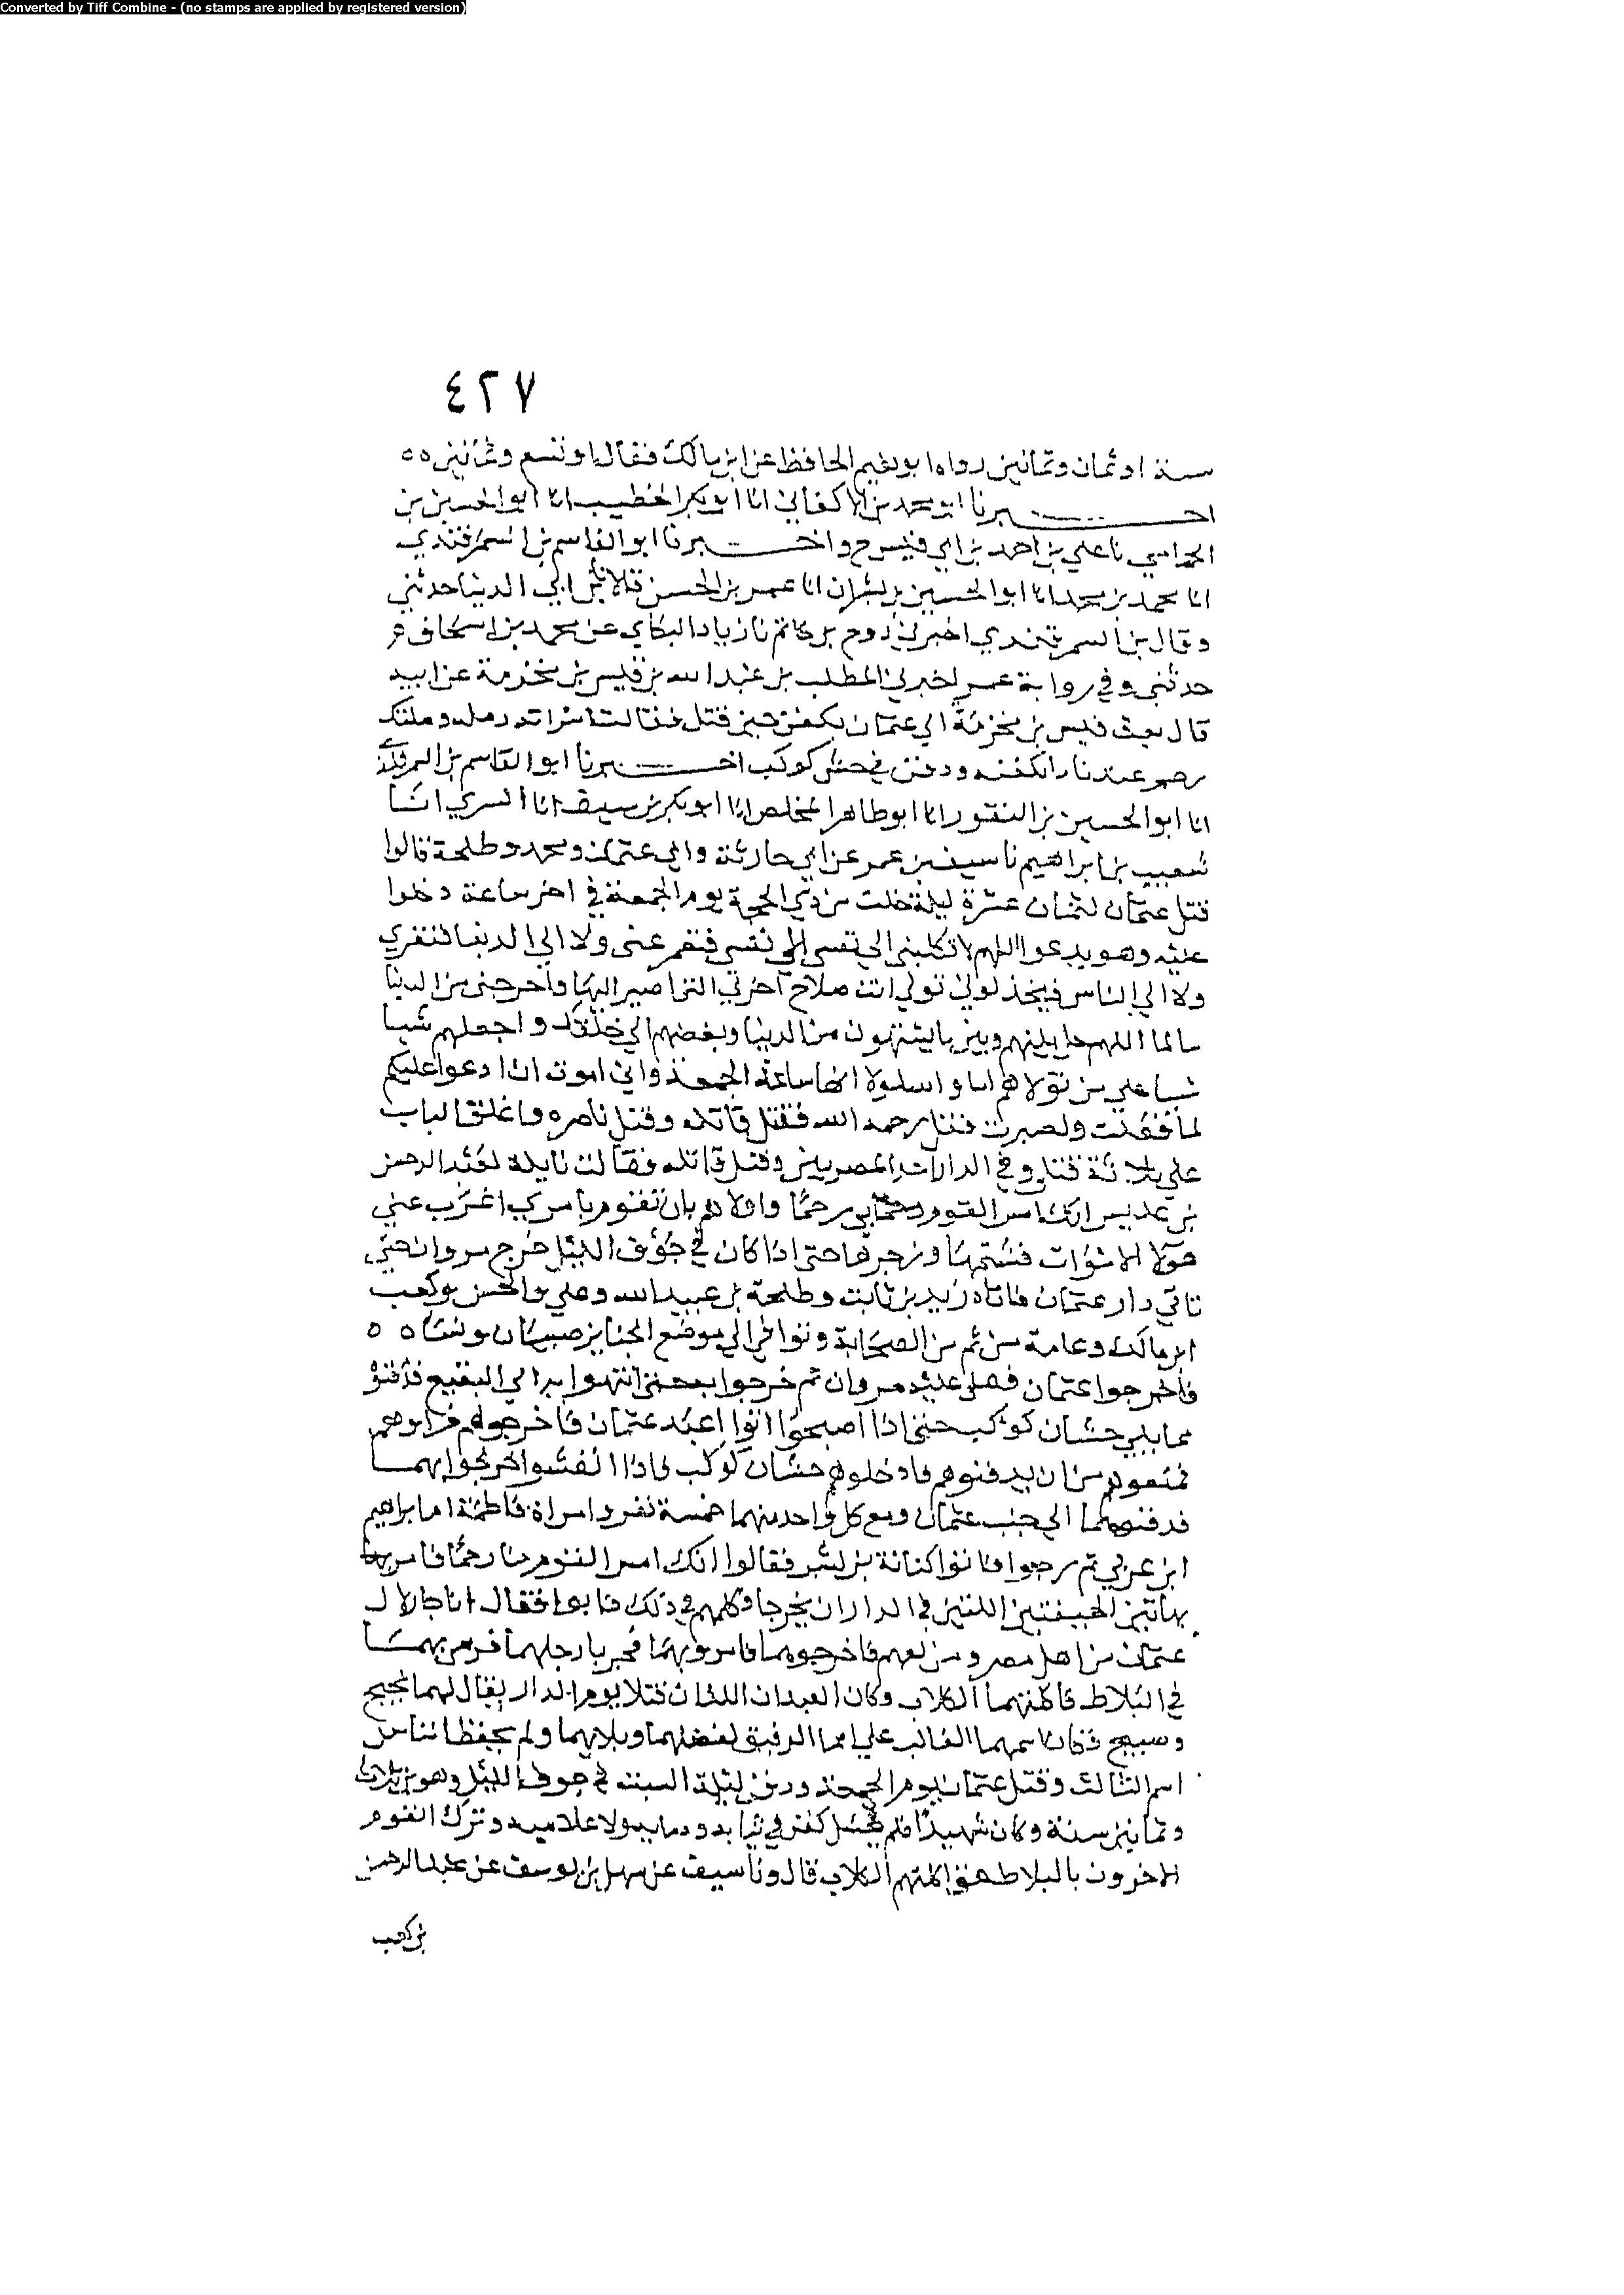 Converted by Tiff Combine - (no stamps are applied by registered version)
٤٢٧
سنة او ثمان وثمانين رواه ابو نعيم الحافظ عن ابن مالك فقال او تسع وثمانين ٥٥
اخبرنا ابو محمد بن الاكفاني انا ابو بكر الخطيب انا ابو الحسين بن
الحمامي نا علي بن احمد بن ابي قيس ح واخبرنا ابو القاسم بن السمرقندي
انا محمد بن محمد انا ابو الحسين بن بشران انا عمر بن الحسن قالا نا ابن ابي الدنيا حدثني
وقال بن السمرقندي اخبرني روح بن حاتم نا زياد البكاي عن محمد بن اسحاق
حدثني وفي رواية عمر اخبرني المطلب بن عبد الله بن قيس بن مخرمة عن ابيه
قال بعث قيس بن مخرمة الي عثمان بكفن حين قتل فقالت امراته رمله
عندنا ما نكفنه ودفن في حش كوكب اخبرنا ابو القاسم بن السمرقندي
انا ابو الحسين بن النقور انا ابو طاهر المخلص انا ابو بكر بن سيف انا السري انا
شعيب بن ابراهيم نا سيف بن عمر عن ابي حارثة وابي عثمان ومحمد وطلحة قالوا
قتل عثمان لثمان عشرة ليلة خلت من ذي الحجة يوم الجمعة في اخر ساعة دخلوا
عليه وهو يدعوا اللهم لا تكلني الي نفسي فتعجز عني ولا الي الدنيا فتغرني
ولا الي الناس فيخذلوني تولي انت صلاح اخرتي التي اصير اليها واخرجني من الدنيا
سالما اللهم حل بينهم وبين ما يشتهون من الدنيا وبغضهم الي خلقك واجعلهم شيا
شيا علي من تولاهم اما والله لولا انها ساعة الجمعة واني اموت ان ادعوا عليكم
لما فعلت ولصبرت فقتل رحمه الله فقتل قاتله وقتل ناصره واغلق الباب
علي ثلاثة قتلي وفي الدار احد المصريين وقتل قاتله فقالت نايلة لعبد الرحمن
بن عديس انك امس القوم رحما بي واولاهم بان تقوم بامري اغرب عني
هولا الاموات فشتمها وزجرها حتى اذا كان في جوف الليل خرج مروان حتى
تاتي دار عثمان فاتاه زيد بن ثابت وطلحة بن عبيد الله وعلي والحسن وكعب
ابن مالك وعامة من ثم من الصحابة وتوافى الي موضع الجنايز صبيان ونساء ٥٥
فاخرجوا عثمان فصلى عليه مروان ثم خرجوا به حتى انتهوا به الي البقيع فدفنوه
مما يلي حشان كوكب حتى اذا اصبحوا اتوا اعبد عثمان فاخرجوهم فراوهم
فمنعوهم من ان يدفنوهم فادخلوهم حشان كوكب فاذا امسوا خرجوا بهما
فدفنوهما الي جنب عثمان ومع كل واحد منهما خمسة نفر وامراة فاطمة ام ابراهيم
ابن عربي ثم رجعوا فاتوا كنانة بن بشر فقالوا انك امس القوم منا رحما فامر
بهاتين الجيفتين اللتين في الدار ان يخرجا فكلمهم في ذلك فابوا فقال انا جار لال
عثمان من اهل مصر ومن لفهم فاخرجوهما فارموا بهما فجر بارجلهما فرمي بهما
في البلاط فاكلتهما الكلاب وكان العبدان اللذان قتلا يوم الدار يقال لهما نجيح
وصبيح فكان اسمهما الغالب علي اسما الرقيق لفضلهما وبلايهما ولم يحفظ الناس
اسم الثالث وقتل عثمان يوم الجمعة ودفن ليلة السبت في جوف الليل وهو بن ثلاث
وثمانين سنة وكان شهيدا فلم يغسل كفن في ثيابه ودمايه ولا غلاميه وترك القوم
الاخرون بالبلاط حتى اكلتهم الكلاب قال ونا سيف عن سهل بن يوسف عن عبد الرحمن
بن كعب